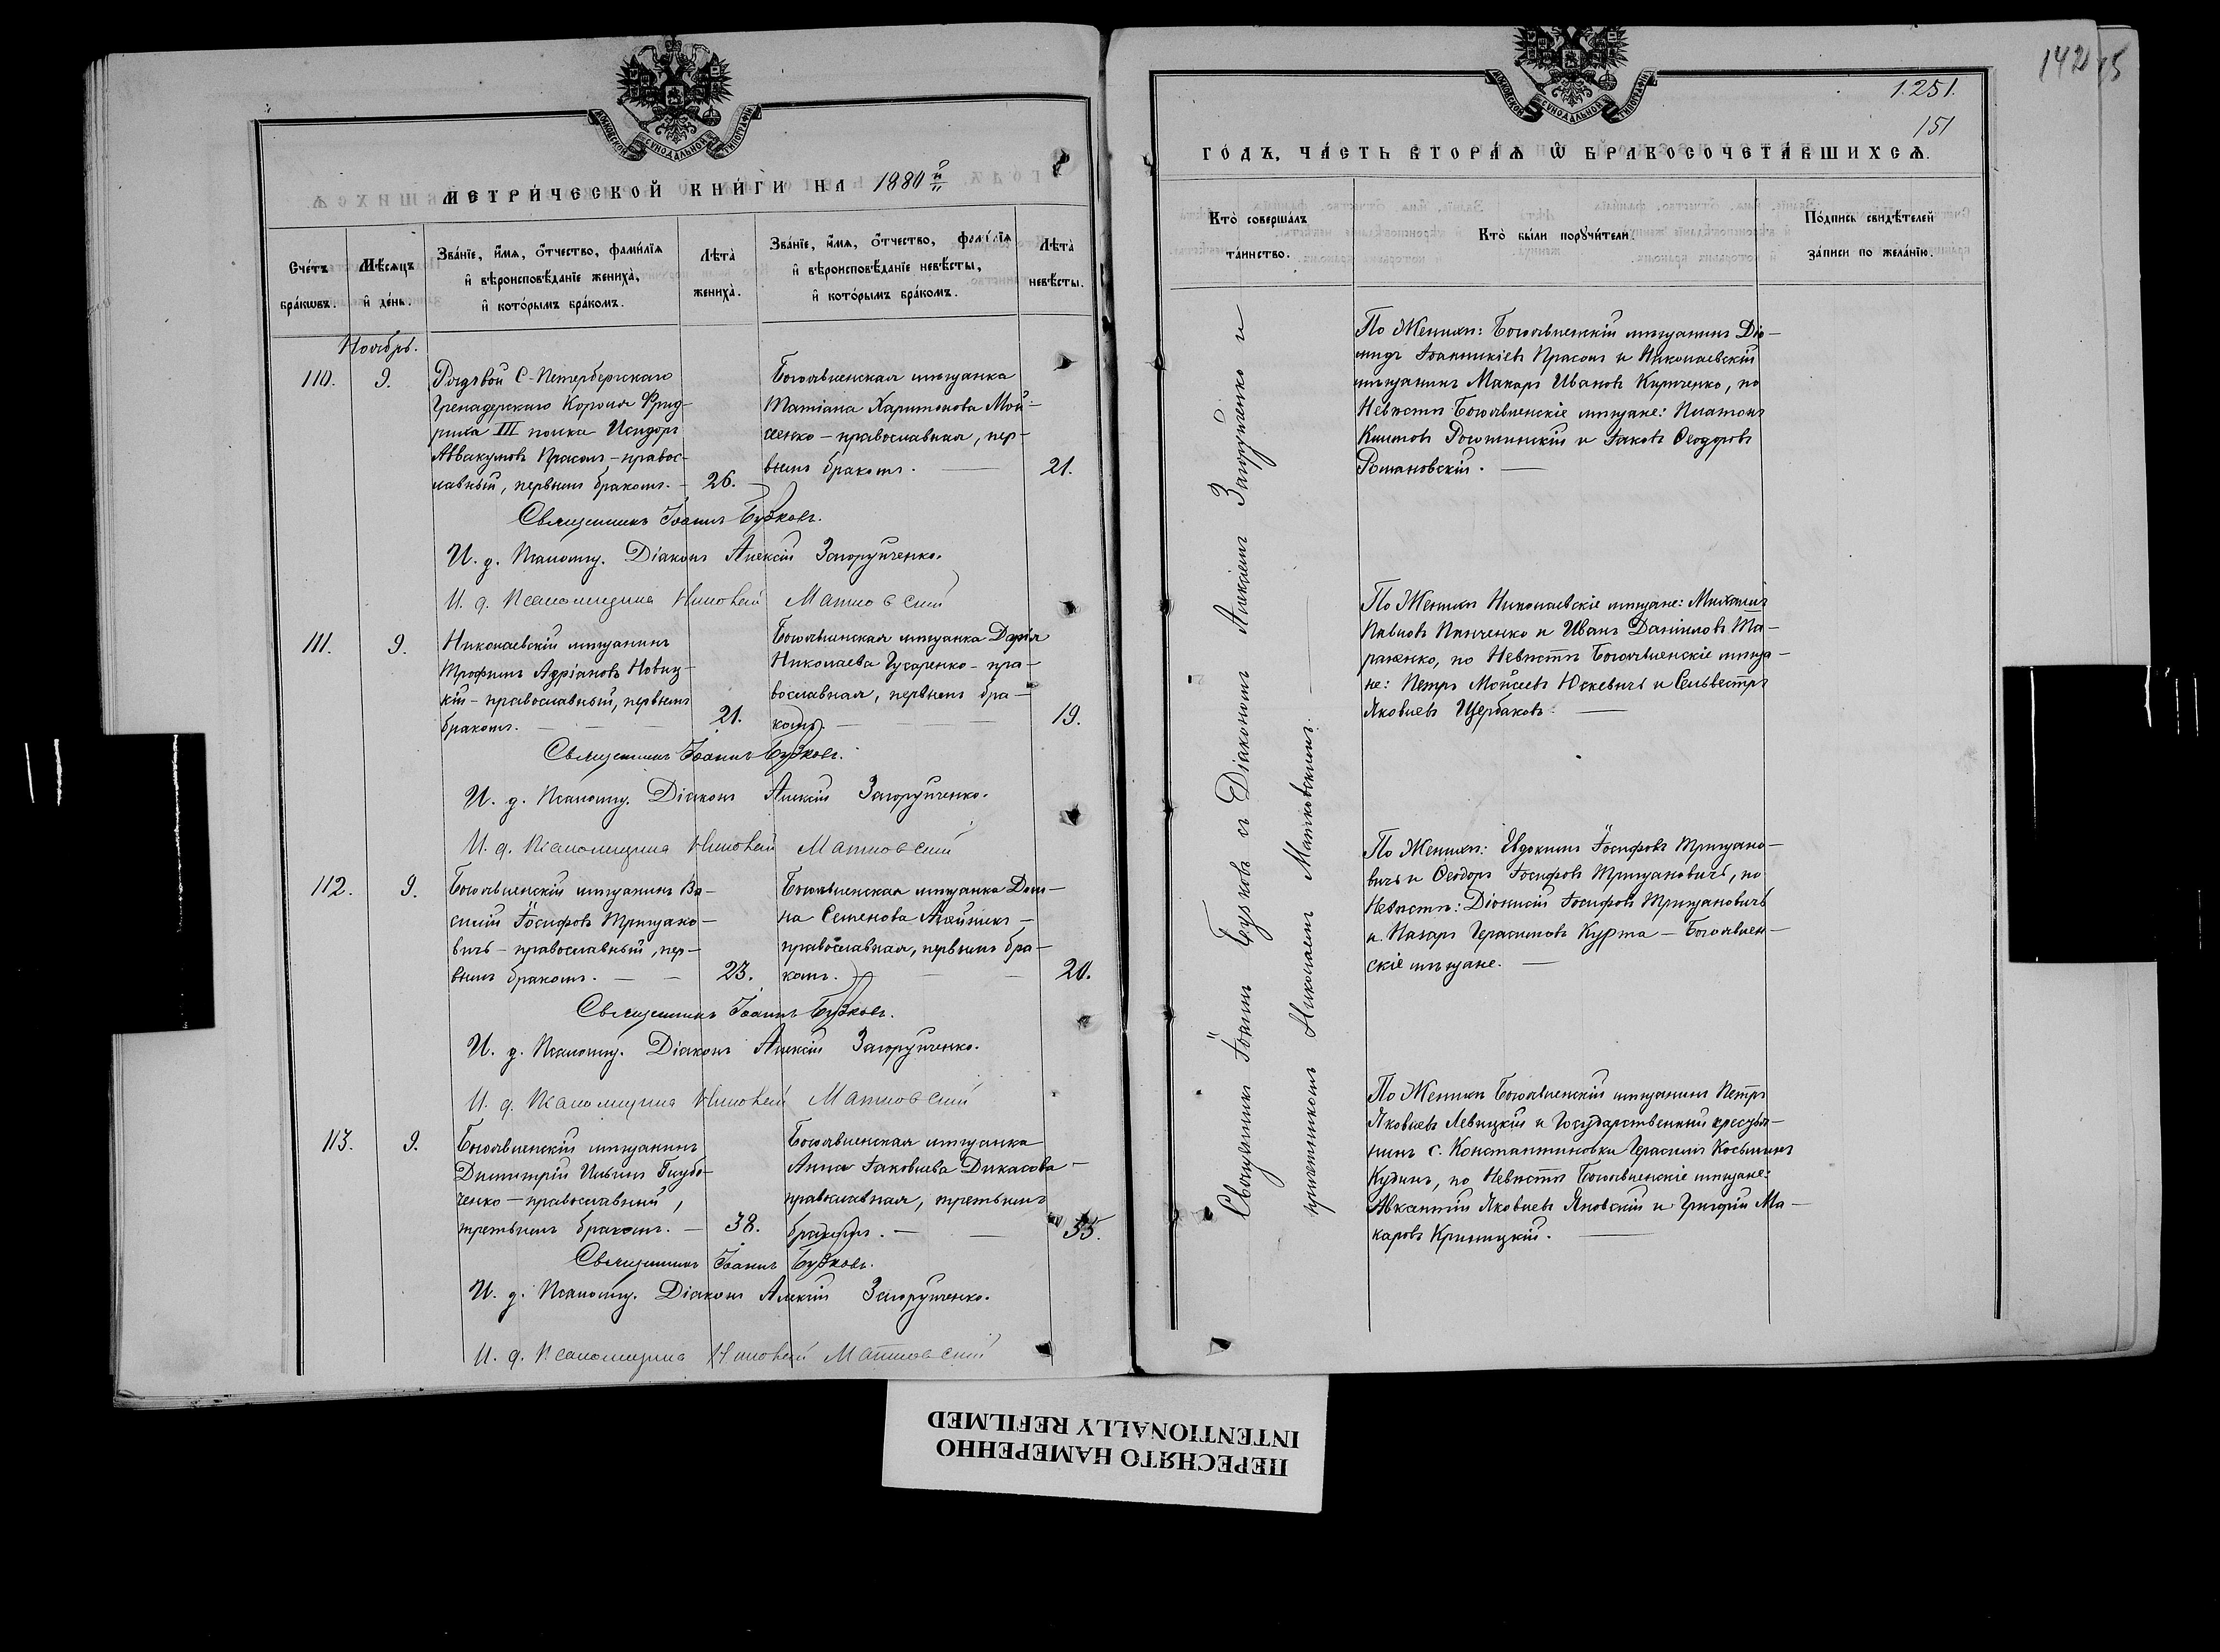 МОСКОВСКОЙ СУНОДАЛЬНОЙ ТИПОГРАФІИ
МЕТРИ́ЧЕСКОЙ КНИ́ГИ НА 1880 й
Сче́тъ бра́кωвъ.
Мѣ́сяцъ и҆ де́нь.
Зва́нїе, и҆́мѧ, ѻ҆́тчество, фамі́лїѧ
и҆ вѣроисповѣ́данїе жениха̀,
и҆ кото́рымъ бра́комъ.
Лѣта̀ жениха̀.
Зва́нїе, и҆́мѧ, ѻ҆́тчество, фамі́лїѧ
и҆ вѣроисповѣ́данїе невѣ́сты,
и҆ кото́рымъ бра́комъ.
Лѣта̀ невѣ́сты.
Ноябрь.
110. 9.
Рядовой С-Петербергскаго
Гренадерскаго Короля Фрид-
риха III полка Исидоръ
Аввакумовъ Прасолъ - правос-
лавный, первымъ бракомъ. - 26.
Богоявленская мѣщанка
Татіана Харитонова Мой-
сеенко - православная, пер-
вымъ бракомъ. 21.
Священникъ Іоаннъ Бузковъ.
И. д. Псаломщ. Діаконъ Алексій Загоруйченко.
И. д. Псаломщика Николай Матковскій
111. 9.
Николаевскій мѣщанинъ
Трофимъ Адріановъ Новиц-
кій - православный, первымъ
бракомъ. 21.
Богоявленская мѣщанка Дарія
Николаева Гусаренко - пра-
вославная, первымъ бра-
комъ. 19.
Священникъ Іоаннъ Бузковъ.
И. д. Псаломщ. Діаконъ Алексій Загоруйченко.
И. д. Псаломщика Николай Матковскій
112. 9.
Богоявленскій мѣщанинъ Ва-
силій Іосифовъ Трищано-
вичъ - православный, пер-
вымъ бракомъ. 23.
Богоявленская мѣщанка Дом-
на Семенова Олейникъ -
православная, первымъ бра-
комъ. 20.
Священникъ Іоаннъ Бузковъ.
И. д. Псаломщ. Діаконъ Алексій Загоруйченко.
И. д. Псаломщика Николай Матковскій
113. 9.
Богоявленскій мѣщанинъ
Димитрій Ильинъ Голубо-
ченко - православный,
третьимъ бракомъ. - 38.
Богоявленская мѣщанка
Анна Іаковлева Дикасова -
православная, третьимъ
бракомъ. 35.
Священникъ Іоаннъ Бузковъ.
И. д. Псаломщ. Діаконъ Алексій Загоруйченко.
И. д. Псаломщика Николай Матковскій
1251.
151
МОСКОВСКОЙ СУНОДАЛЬНОЙ ТИПОГРАФІИ
ГО́ДЪ, ЧА́СТЬ ВТОРА́Ѧ Ѽ БРАКОСОЧЕТА́ВШИХСѦ.
Кто̀ соверша́лъ та́инство.
Кто̀ бы́ли порꙋчи́тели.
По́дпись свидѣ́телей за́писи по жела́нїю.
Священникъ Іоаннъ Бузковъ съ Діакономъ Алексіемъ Загоруйченко и
причетникомъ Николаемъ Матковскимъ.
По Женихѣ: Богоявленскій мѣщанинъ Діо-
мидъ Іоанникіевъ Прасолъ и Николаевскій
мѣщанинъ Макаръ Ивановъ Кириченко, по
Невѣстѣ Богоявленскіе мѣщане: Платонъ
Климовъ Рогатинскій и Іаковъ Ѳеодоровъ
Романовскій.
По Женихѣ Николаевскіе мѣщане: Михаилъ
Павловъ Панченко и Иванъ Даніиловъ Та-
раненко, по Невѣстѣ Богоявленскіе мѣща-
не: Петръ Мойсеевъ Юкевичъ и Сельвестръ
Яковлевъ Щербаковъ.
По Женихѣ: Евдокимъ Іосифовъ Трищано-
вичъ и Ѳеодоръ Іосифовъ Трищановичъ, по
Невѣстѣ: Діонисій Іосифовъ Трищановичъ
и Назаръ Герасимовъ Курта - Богоявлен-
скіе мѣщане.
По Женихѣ Богоявленскій мѣщанинъ Петръ
Яковлевъ Левицкій и Государственный крестья-
нинъ с. Константиновки Герасимъ Косьминъ
Кудинъ, по Невѣстѣ Богоявленскіе мѣщане:
Авксентій Яковлевъ Яновскій и Григорій Ма-
каровъ Криницкій.
ПЕРЕСНЯТО НАМЕРЕННО
INTENTIONALLY REFILMED